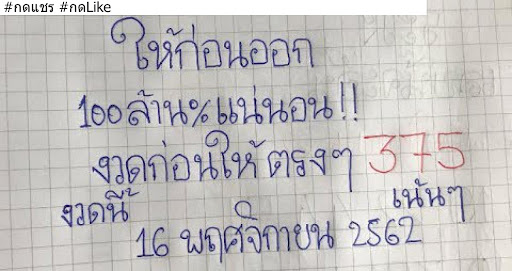 #กดแชร #กดLike
ให้ก่อนออก
100ล้าน%แน่นอน!!
งวดก่อนให้ตรงๆ 375
งวดนี้ เน้นๆ
16 พฤศจิกายน 2562